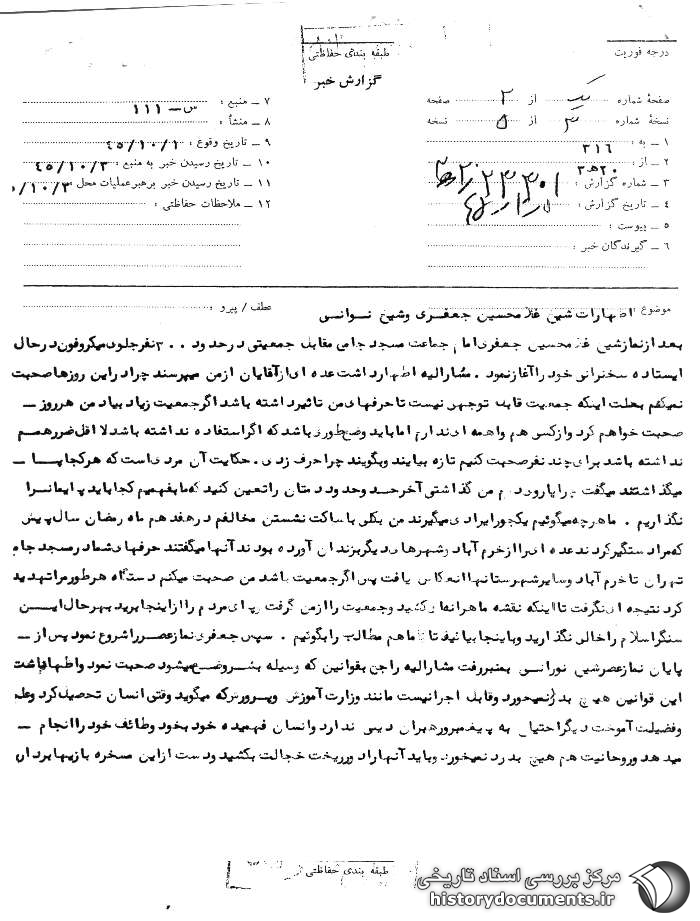 درجه فوریت
طبقه بندی حفاظتی
گزارش خبر
صفحهٔ شماره یک از ۲ صفحه
نسخهٔ شماره ۳ از ۵ نسخه
۱ – به : ۳۱۶
۲ – از : ۲۰ هـ ۳
۳ – شماره گزارش : ۲۳۳۰۱
۴ – تاریخ گزارش :
۵ – پیوست :
۶ – گیرندگان خبر :
۷ – منبع : س – ۱۱۱
۸ – منشأ :
۹ – تاریخ وقوع : ۴۵/۱۰/۱
۱۰ – تاریخ رسیدن خبر به منبع : ۴۵/۱۰/۳
۱۱ – تاریخ رسیدن خبر برهبر عملیات محل ۱۰/۳/
۱۲ – ملاحظات حفاظتی :
موضوع : اظهارات شیخ غلامحسین جعفری و شیخ نورانی
عطف / پیرو :
بعد از نماز شیخ غلامحسین جعفری امام جماعت مسجد جامع مقابل جمعیتی در حدود ۳۰۰ نفر جلو میکروفون در حال
ایستاده سخنرانی خود را آغاز نمود . مشارالیه اظهار داشت عده ای از آقایان از من میپرسند چرا در این روزها صحبت
نمیکنم بعلت اینکه جمعیت قابل توجهی نیست تا حرفهای من تاثیر داشته باشد اگر جمعیت زیاد بیاد من هر روز –
صحبت خواهم کرد و از کسی هم واهمه ای ندارم اما باید وضع طوری باشد که اگر استفاده نداشته باشد لااقل ضرر هم
نداشته باشد برای چند نفر صحبت کنیم تازه بیایند و بگویند چرا حرف زدی . حکایت آن مردی است که هر کجا پا –
میگذاشتند میگفت چرا پا روی دم من گذاشتی آخر حد و حدود دمتان را تعین کنید که ما بفهمیم کجا باید پایمانرا
نگذاریم . ما هرچه میگوئیم یکجور ایرادی میگیرند من بکلی با ساکت نشستن مخالفم در هفدهم ماه رمضان سال پیش
که مرا دستگیر کردند عده ای را از خرم آباد و شهرهای دیگر بزندان آورده بودند آنها میگفتند حرفهای شما در مسجد جامع
تهران تا خرم آباد و سایر شهرستانها انعکاس یافت پس اگر جمعیت باشد من صحبت میکنم دستگاه هر طور مرا تهدید
کرد نتیجه ای نگرفت تا اینکه نقشه ماهرانه ای کشید و جمعیت را از من گرفت و پای مردم را از اینجا برید بهرحال این
سنگر اسلام را خالی نگذارید و باینجا بیائید تا ما هم مطالب را بگوئیم . سپس جعفری نماز عصر را شروع نمود پس از –
پایان نماز عصر شیخ نورانی بمنبر رفت مشارالیه راجع بقوانین که وسیله بشر وضع میشود صحبت نمود و اظهار داشت
این قوانین هیچ بدرد نمیخورد و قابل اجرا نیست مانند وزارت آموزش و پرورش که میگوید وقتی انسان تحصیل کرد و علم
و فضیلت آموخت دیگر احتیاجی به پیغمبر و رهبران دینی ندارد و انسان فهمیده خود بخود وظائف خود را انجام –
میدهد و روحانیت هم هیچ بدرد نمیخورد و باید آنها را دور ریخت خجالت بکشید و دست از این مسخره بازیها بردارید
طبقه بندی حفاظتی
مرکز بررسی اسناد تاریخی
historydocuments.ir